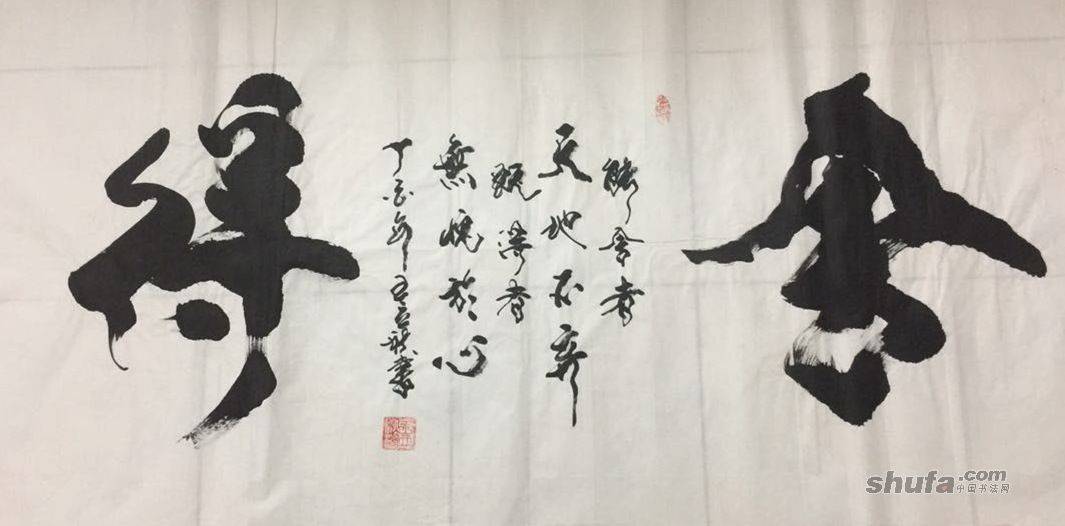 舍
能舍者
天地不弃
既得者
無愧於心
丁酉年
得
shufa.com
中国书法网